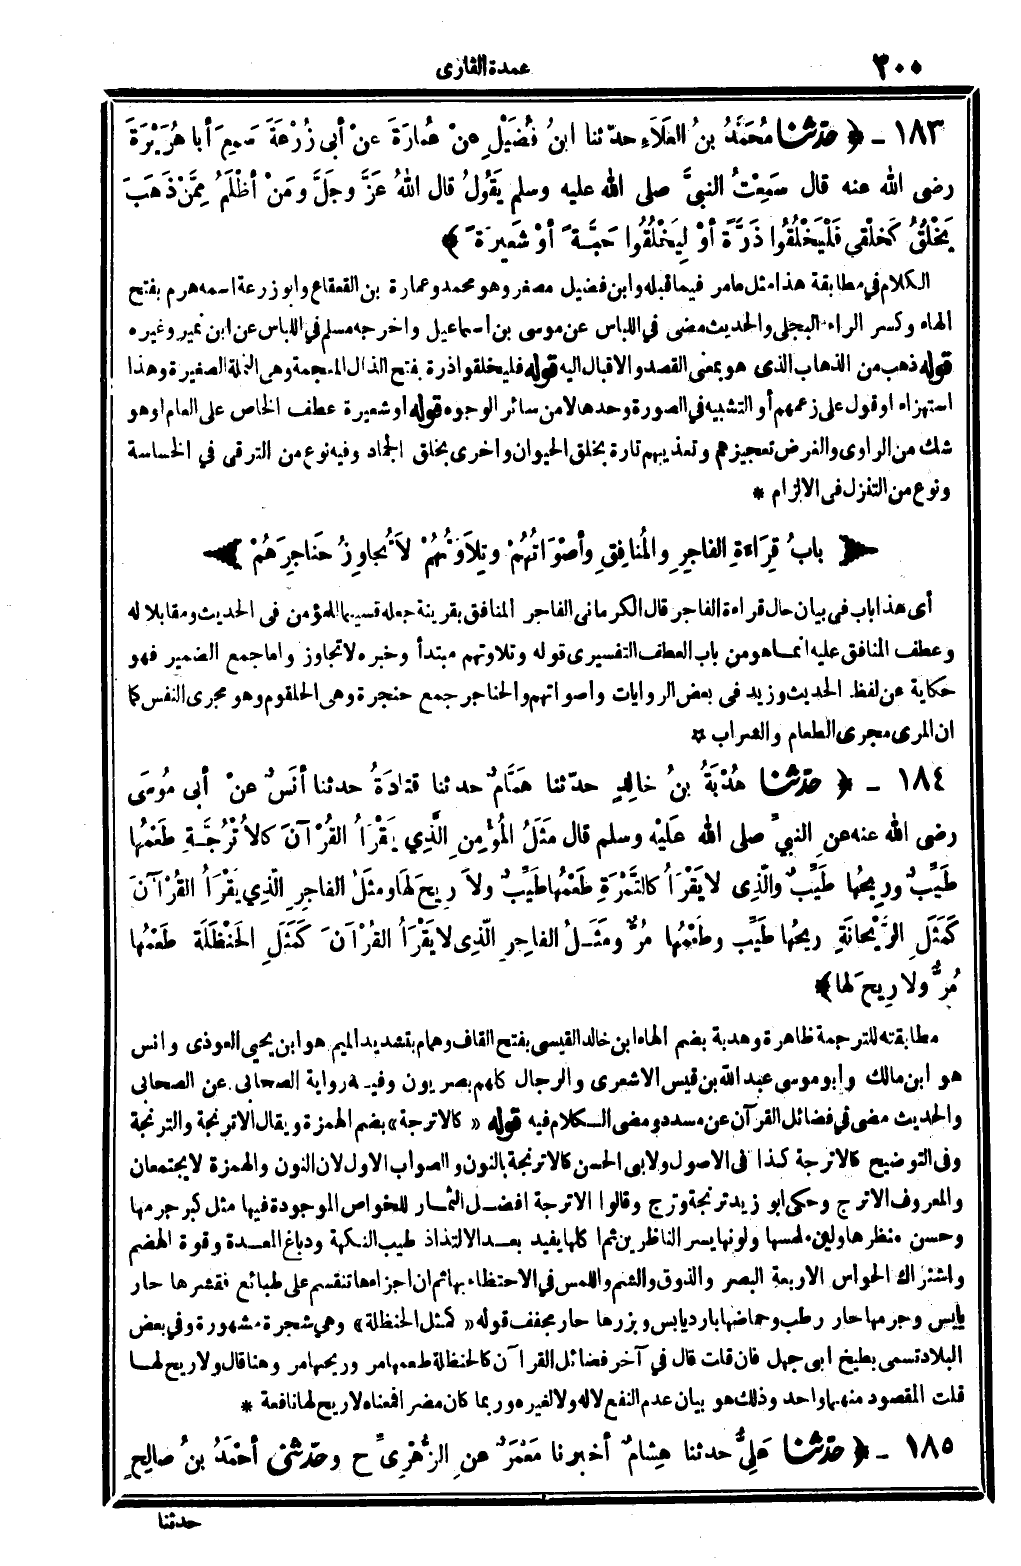 ٢٠٠
عمدة القارى
١٨٣ - ﴿ حدّثنا مُحَمَّدُ بنُ العَلَاءِ حدّثنا ابنُ فُضَيْلٍ عنْ عُمَارَةَ عنْ أبى زُرْعَةَ سَمِعَ أبا هُرَيْرَةَ
رضى الله عنه قال سَمِعْتُ النبىَّ صلى الله عليه وسلم يَقُولُ قال اللهُ عَزَّ وجلَّ ومَنْ أظْلَمُ مِمَّنْ ذَهَبَ
يَخْلُقُ كَخَلْقِى فَلْيَخْلُقُوا ذَرَّةً أوْ لِيَخْلُقُوا حَبَّةً أوْ شَعِيرَةً ﴾
الكلام في مطابقة هذا مثل ما مر فيما قبله وابن فضيل مصغر وهو محمد وعمارة بن القعقاع وابو زرعة اسمه هرم بفتح
الهاء وكسر الراء البجلى والحديث مضى في اللباس عن موسى بن اسماعيل واخرجه مسلم في اللباس عن ابن نمير وغيره
قوله ذهب من الذهاب الذى هو بمعنى القصد والاقبال اليه قوله فليخلقوا ذرة بفتح الذال المعجمة وهى النملة الصغيرة وهذا
استهزاء او قول على زعمهم أو التشبيه في الصورة وحدها لا من سائر الوجوه قوله او شعيرة عطف الخاص على العام او هو
شك من الراوى والغرض تعجيزهم وتعذيبهم تارة بخلق الحيوان واخرى بخلق الجماد وفيه نوع من الترقى في الخساسة
ونوع من التنزل فى الالزام *
باب قِرَاءَةِ الفاجِرِ والمُنافِقِ وأصْوَاتُهُمْ وتِلاَوَتُهُمْ لاَ تُجاوِزُ حَناجِرَهُمْ
أى هذا باب فى بيان حال قراءة الفاجر قال الكرمانى الفاجر المنافق بقرينة جعله قسيما للمؤمن فى الحديث ومقابلا له
وعطف المنافق عليه انما هو من باب العطف التفسيرى قوله وتلاوتهم مبتدأ وخبره لا تجاوز واما جمع الضمير فهو
حكاية عن لفظ الحديث وزيد فى بعض الروايات واصواتهم والحناجر جمع حنجرة وهى الحلقوم وهو مجرى النفس كما
ان المرى مجرى الطعام والشراب *
١٨٤ - ﴿ حدّثنا هُدْبَةُ بنُ خالِدٍ حدّثنا هَمَّامٌ حدثنا قتادَةُ حدثنا أنَسٌ عنْ أبى مُوسَى
رضى الله عنه عنِ النبىِّ صلى الله عَلَيْه وسلم قال مَثَلُ المُؤْمِنِ الَّذِي يَقْرَأُ القُرْآنَ كالأُتْرُجَّةِ طَعْمُها
طَيِّبٌ ورِيحُها طَيِّبٌ والّذِى لا يَقْرَأُ كالتَّمْرَةِ طَعْمُها طَيِّبٌ ولاَ رِيحَ لَها ومثَلُ الفاجِرِ الّذِي يَقْرَأُ القُرْآنَ
كَمَثَلِ الرَّيْحانَةِ رِيحُها طَيِّبٌ وطَعْمُها مُرٌّ ومَثَلُ الفاجِرِ الّذِى لا يَقْرَأُ القُرْآنَ كَمَثَلِ الحَنْظَلَةِ طَعْمُها
مُرٌّ ولا رِيحَ لها ﴾
مطابقته للترجمة ظاهرة وهدبة بضم الهاء ابن خالد القيسى بفتح القاف وهمام بتشديد الميم هو ابن يحيى العوذى وانس
هو ابن مالك وابو موسى عبد الله بن قيس الاشعرى والرجال كلهم بصريون وفيه رواية الصحابى عن الصحابى
والحديث مضى في فضائل القرآن عن مسدد ومضى الكلام فيه قوله « كالاترجة» بضم الهمزة ويقال الاترنجة والترنجة
وفى التوضيح كالاترجة كذا فى الاصول ولابى الحسن كالاترنجة بالنون والصواب الاول لان النون والهمزة لا يجتمعان
والمعروف الاترج وحكى ابو زيد ترنجة وترج وقالوا الاترجة افضل الثمار للخواص الموجودة فيها مثل كبر جرمها
وحسن منظرها ولين ملمسها ولونها يسر الناظرين ثم اكلها يفيد بعد الالتذاذ طيب النكهة ودباغ المعدة وقوة الهضم
واشتراك الحواس الاربعة البصر والذوق والشم واللمس في الاحتظاء بها ثم ان اجزاءها تنقسم على طبائع فقشرها حار
يابس وجرمها حار رطب وحماضها بارد يابس وبزرها حار مجفف قوله « كمثل الحنظلة» وهي شجرة مشهورة وفي بعض
البلاد تسمى بطيخ ابى جهل فان قلت قال في آخر فضائل القرآن كالحنظلة طعمها مر وريحها مر وهنا قال ولا ريح لها
قلت المقصود منهما واحد وذلك هو بيان عدم النفع لا له ولا لغيره وربما كان مضرا فمعناه لا ريح لها نافعة *
١٨٥ - ﴿ حدّثنا عَلِىٌّ حدثنا هِشامٌ أخبرنا مَعْمَرٌ عنِ الزُّهْرِىِّ ح وحدّثنى أحْمَدُ بنُ صالِحٍ
حدثنا